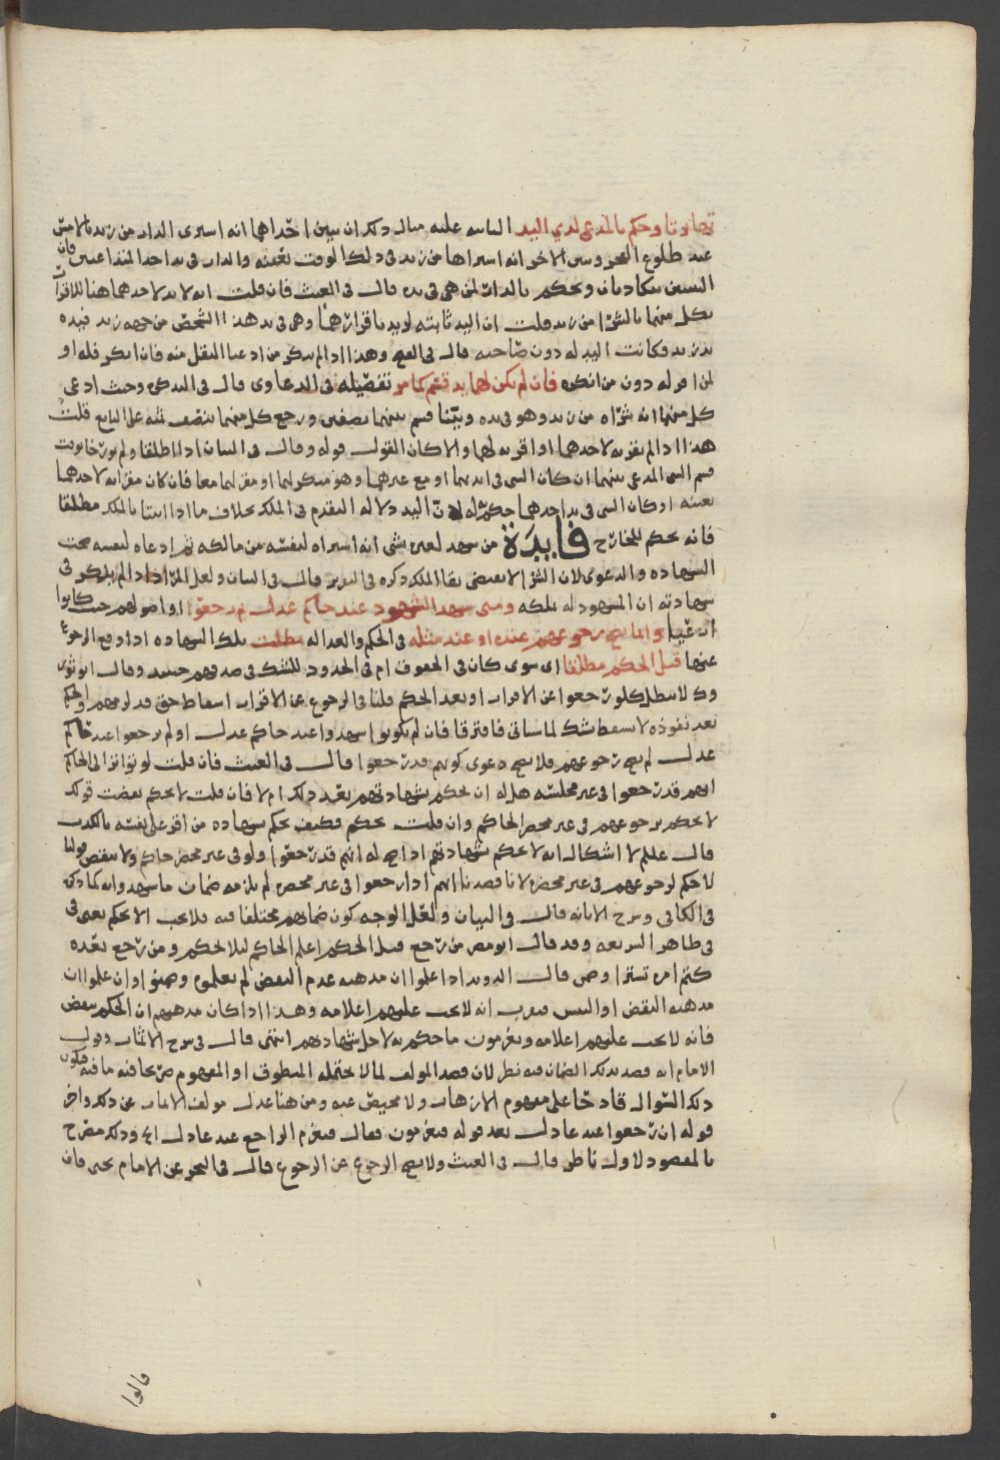 تهاترتا وحكم بالمدعى لذي اليد الثابته عليه مثال ذلك ان يبين احدهما انه اشترى الدار من زيد بالامس
عند طلوع الفجر وبين الاخر انه اشتراها من زيد في ذلك الوقت بعينه والدار في يد احد المتداعيين فان
البينتين يتكاذبان ويحكم بالدار لمن هي في يده قال في الغيث فان قلت انه لا يد لاحدهما هنا للاقرار
بكل منهما بالشرا من زيد قلت ان اليد ثابته لزيد باقرارهما وهي في يد هذا الشخص من جهه زيد فيده
يد زيد فكانت اليد له دون صاحبه قال في وهذا اذا لم ينكر من ادعيا النقل منه فان انكر فله او
لمن اقر له دون من انكره فان لم يكن لهما يد قسم كما مر تفصيله في الدعاوى قال في وحيث ادعى
كل منهما انه شراه من زيد وهو في يده وبينا قسم بينهما نصفين ورجع كل منهما بنصف ثمنه على البايع قلت
هذا اذا لم يقر به لاحدهما او اقر به لهما والا كان القول قوله وقال في البيان اذا اطلقا ولم يورخا بوقت
قسم الشي المدعى بينهما ان كان الشي في ايديهما او مع غيرهما وهو منكر لهما او مقر لهما معا فان كان مقرا به لاحدهما
بعينه او كان الشي في يد احدهما حكم له لان اليد دلاله التقدم في الملك بخلاف ما اذا بالملك مطلقا
فانه يحكم للخارج فايدة من شهد لغيره بشي انه اشتراه لنفسه من مالكه ثم ادعاه لنفسه صحت
الشهاده والدعوى لان الشرا لا يقتضي بقا الملك ذكره في قال في البيان ولعل المراد اذا لم يذكر في
شهادته ان المشهود له يملكه ومتى شهد الشهود عند حاكم عدل ثم رجعوا او اصولهم حيث كانوا
وانما يصح رجوعهم عنده او عند مثله في الحكم والعداله بطلت تلك الشهاده اذا وقع الرجوع
عنها قبل الحكم مطلقا اي سوى كان في الحقوق ام في الحدود للشك في صدقهم حينئذ وقال ابو ثور
لا تبطل كلو رجعوا عن الاقرار او بعد الحكم قلنا في الرجوع عن الاقرار اسقاط حق قد لزمهم والحكم
بعد نفوذه لا يسقط بشك لما سياتي فافترقا فان لم يكونوا شهدوا عند حاكم عدل او لم يرجعوا عند حاكم
عدل لم يصح رجوعهم فلا يصح دعوى كونهم قد رجعوا قال في الغيث فان قلت لو تواتر الى الحاكم
انهم قد رجعوا في غير مجلسه هل له ان يحكم بشهادتهم بعد ذلك ام لا فان قلت لا يحكم نقضت قولك
لا حكم لرجوعهم في غير محضر الحاكم وان قلت يحكم فكيف يحكم بشهاده من اقر على نفسه بالكذب
قال لا اشكال انه لا يحكم بشهادتهم اذا صح له انهم قد رجعوا ولو في غير محضر حاكم ولا ينقض قولنا
لا حكم لرجوعهم في غير محضره لانا قصدنا انهم اذا رجعوا في غير محضر لم يلزمه ضمان ما شهدوا به كما ذكره
في الكافي وشرح الابانه قال في البيان ولعل الوجه كون ضمانهم مختلفا فيه فلا يجب الا بحكم يعني في
في ظاهر الشريعه وقد قال ابو مضر من رجع قبل الحكم اعلم الحاكم ليلا يحكم ومن رجع بعده
كتم امره تسترا قال اذا علموا ان مذهبه عدم النقض لم يعلموه وضمنوا وان علموا ان
مذهبه النقض او التبس فيقرب انه لا يجب عليهم اعلامه وهذا اذا كان مذهبهم ان الحكم ينقض
فانه لا يجب عليهم اعلامه ويغرمون ما حكم به لاجل شهادتهم انتهى قال في شرح الاثمار وقول
الامام انه قصد بذلك الضمان فيه نظر لان قصد المولف لما لا يحتمله المنطوق او المفهوم صريحا فيه ما فيه فيكون
ذلك السوال قادحا على مفهوم الازهار ولا محيص عنه ومن هنا عدل مولف الاثمار عن ذلك واخر
قوله ان رجعوا عند عادل بعد قوله فيغرمون فقال فيغرم الراجع عند عادل الخ وذلك مصرح
بالمقصود للاول ناظر قال في الغيث ولا يصح الرجوع عن الرجوع قال في البحر عن الامام يحيى فان
قالوا